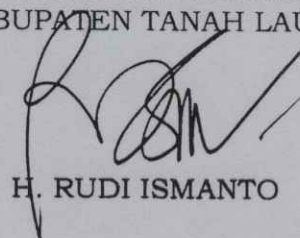 BUPATEN TANAH LAU
H. RUDI ISMANTO